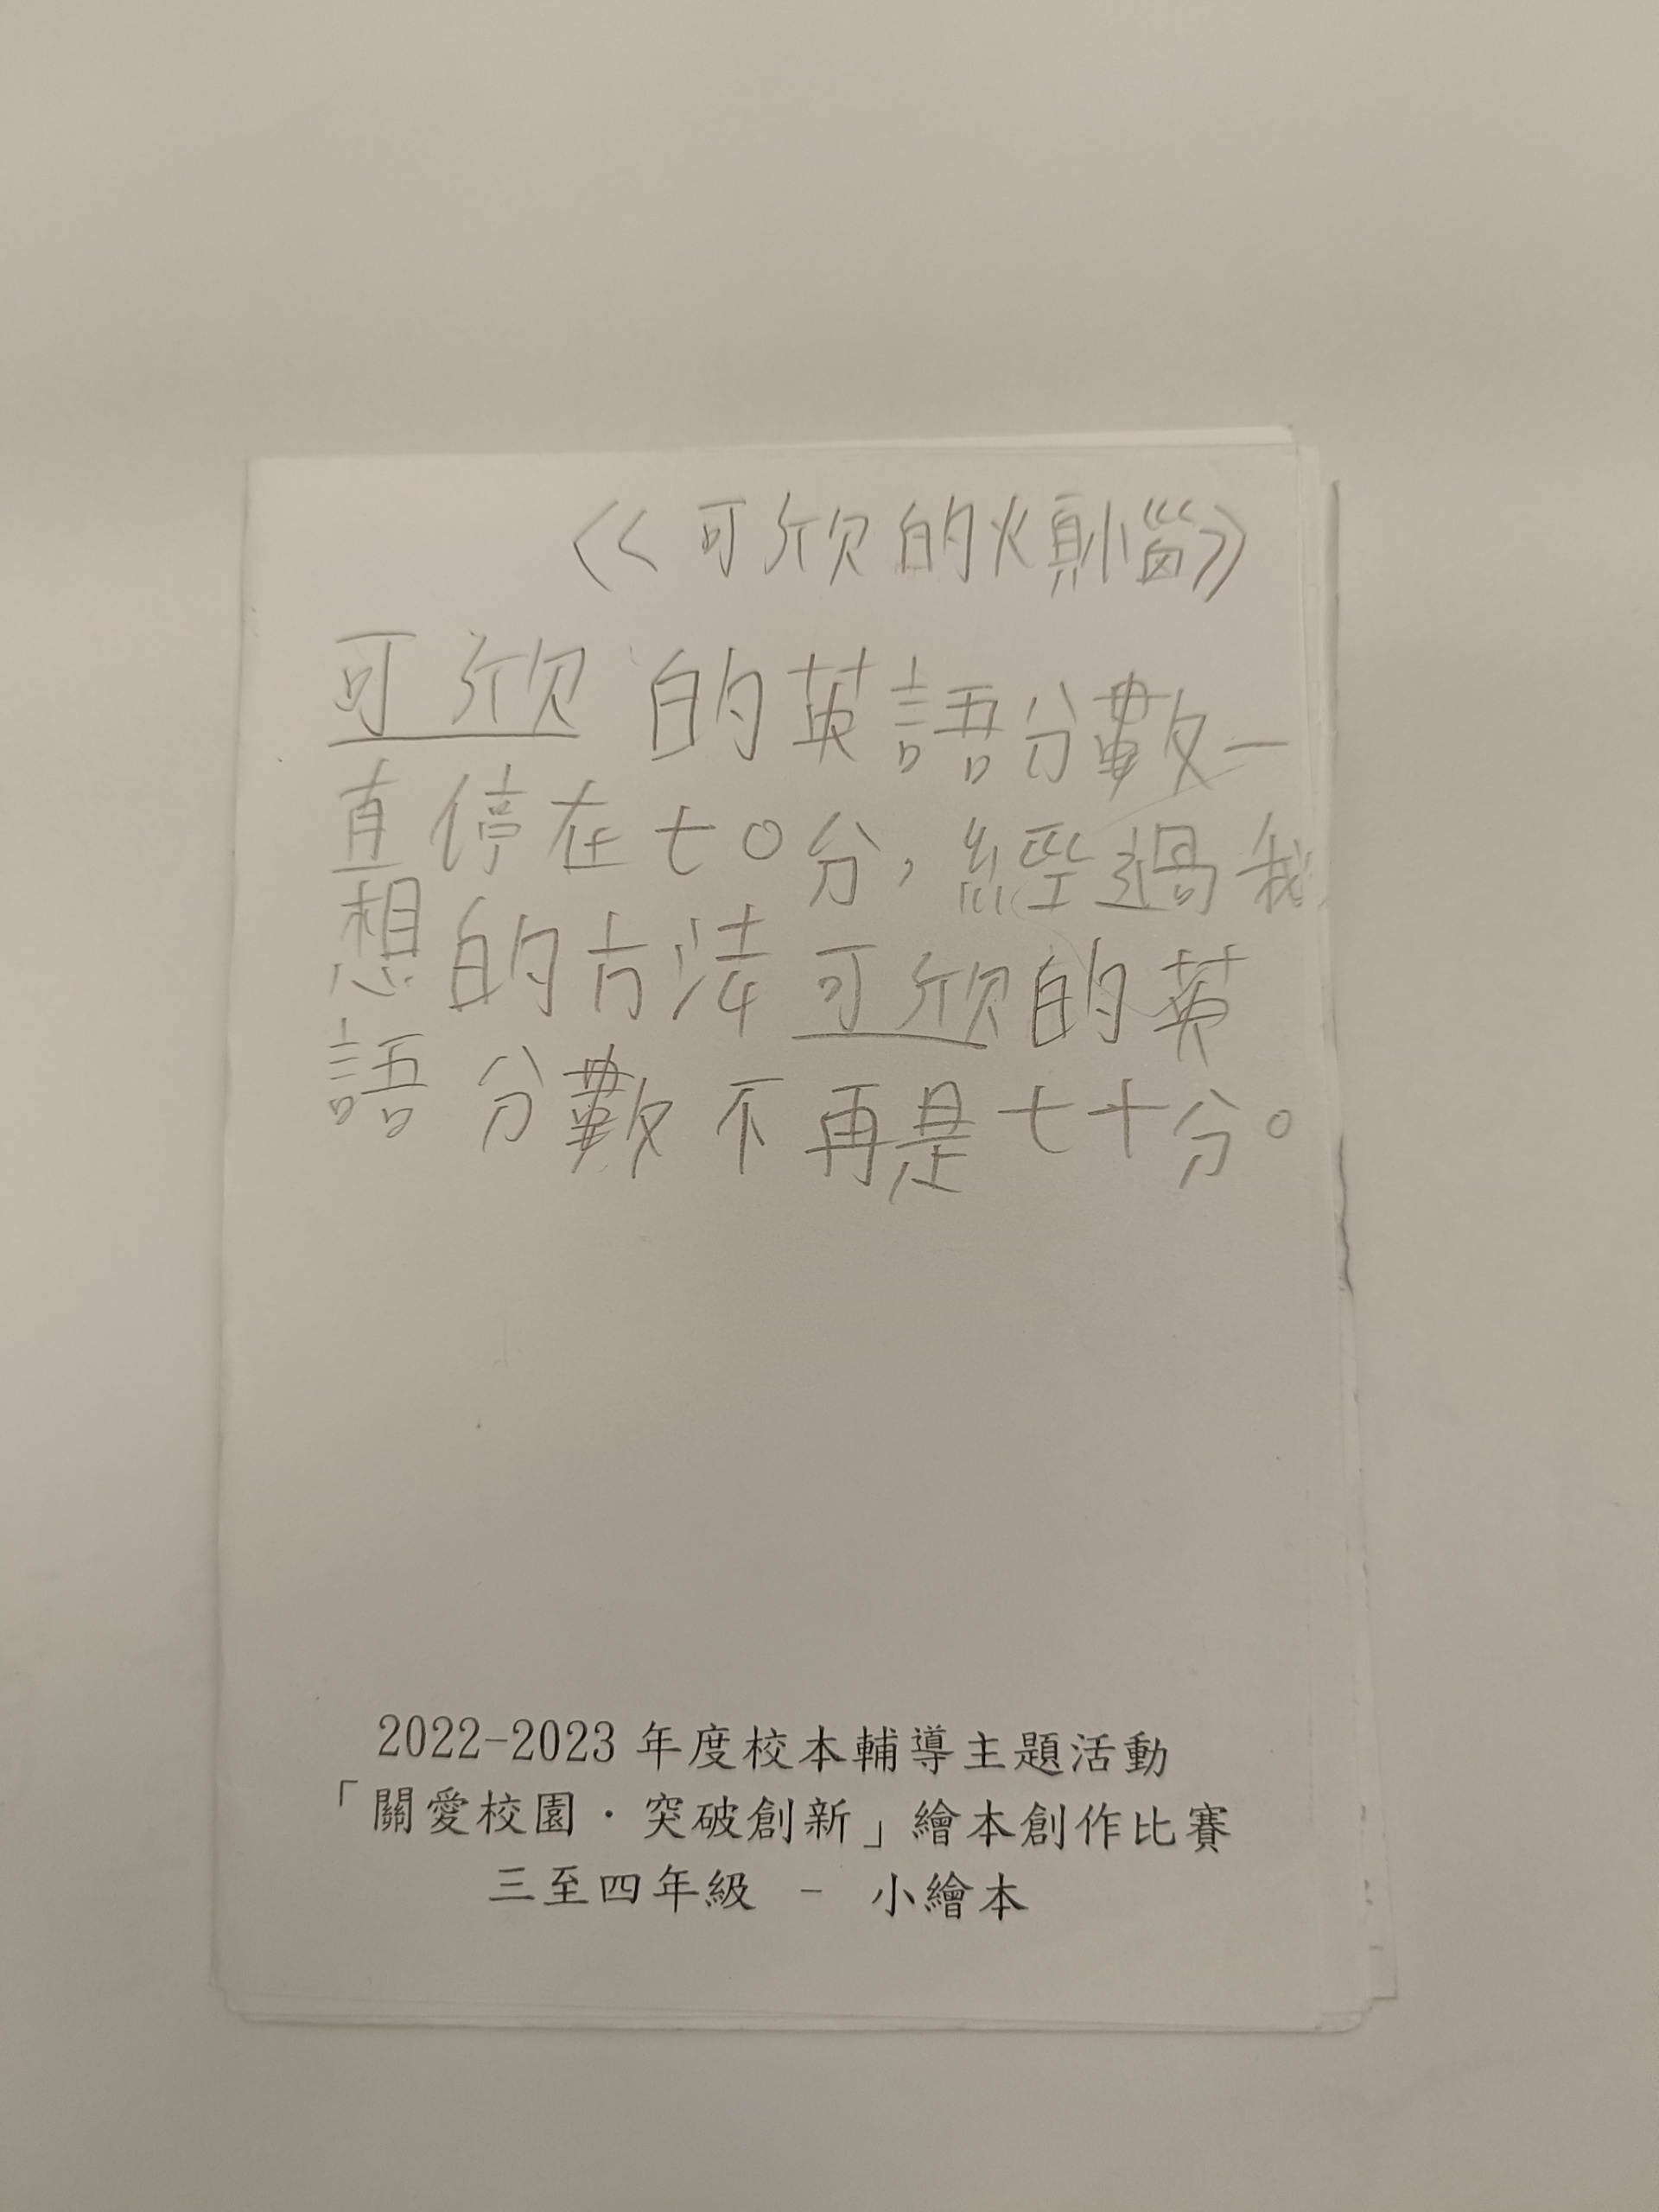 《可欣的煩惱》
可欣的英語分數一
直停在七〇分，經過我
想的方法可欣的英
語分數不再是七十分。
2022-2023 年度校本輔導主題活動
「關愛校園．突破創新」繪本創作比賽
三至四年級 - 小繪本